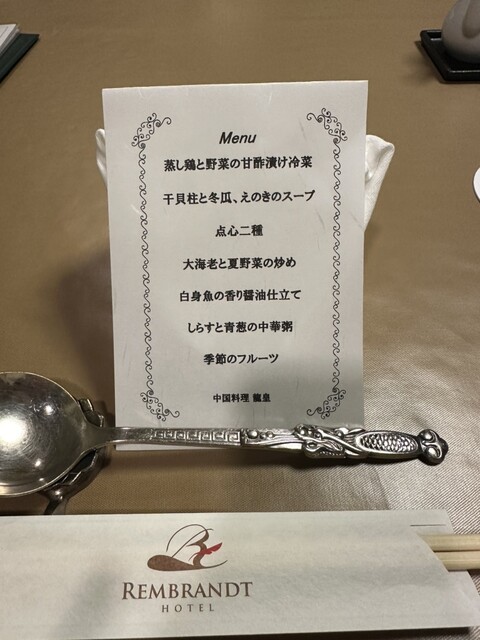 Menu
蒸し鶏と野菜の甘酢漬け冷菜
干貝柱と冬瓜、えのきのスープ
点心二種
大海老と夏野菜の炒め
白身魚の香り醤油仕立て
しらすと青葱の中華粥
季節のフルーツ
中国料理 龍皇
REMBRANDT
HOTEL